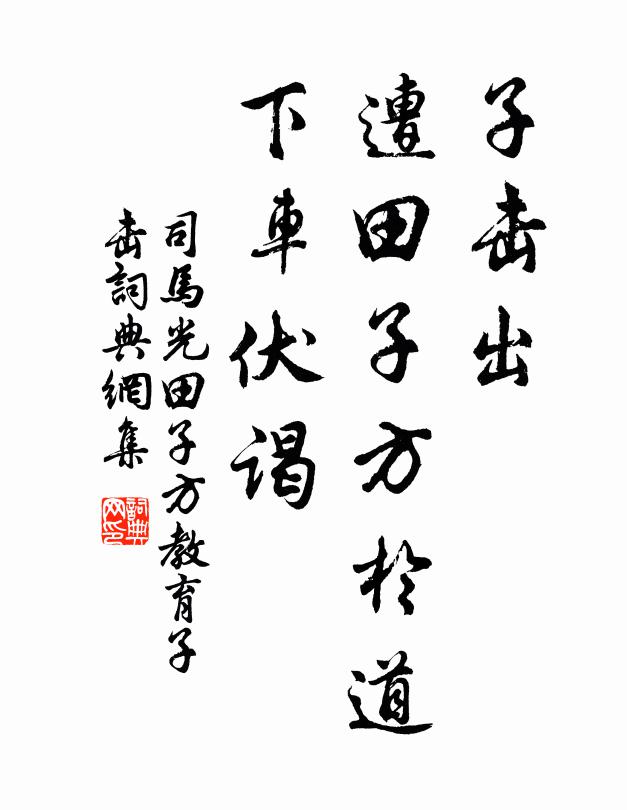 子击出
遭田子方於道
下車伏謁
司馬光田子方教育子
击詞典網集
詞典
网印